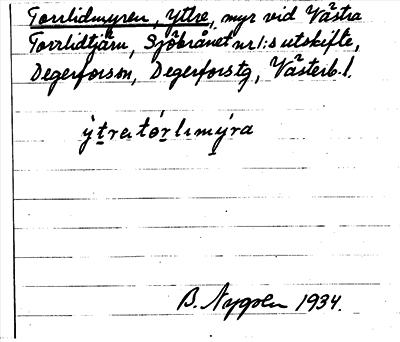 Torrlidmyren, Yttre, myr vid Västra
Torrlidtjärn, Sjöbrånet nr 1:s utskifte,
Degerforssn, Degerfors tg, Västerb. l.
ýtrɛtórlɩmýra
B. Nygren 1934.